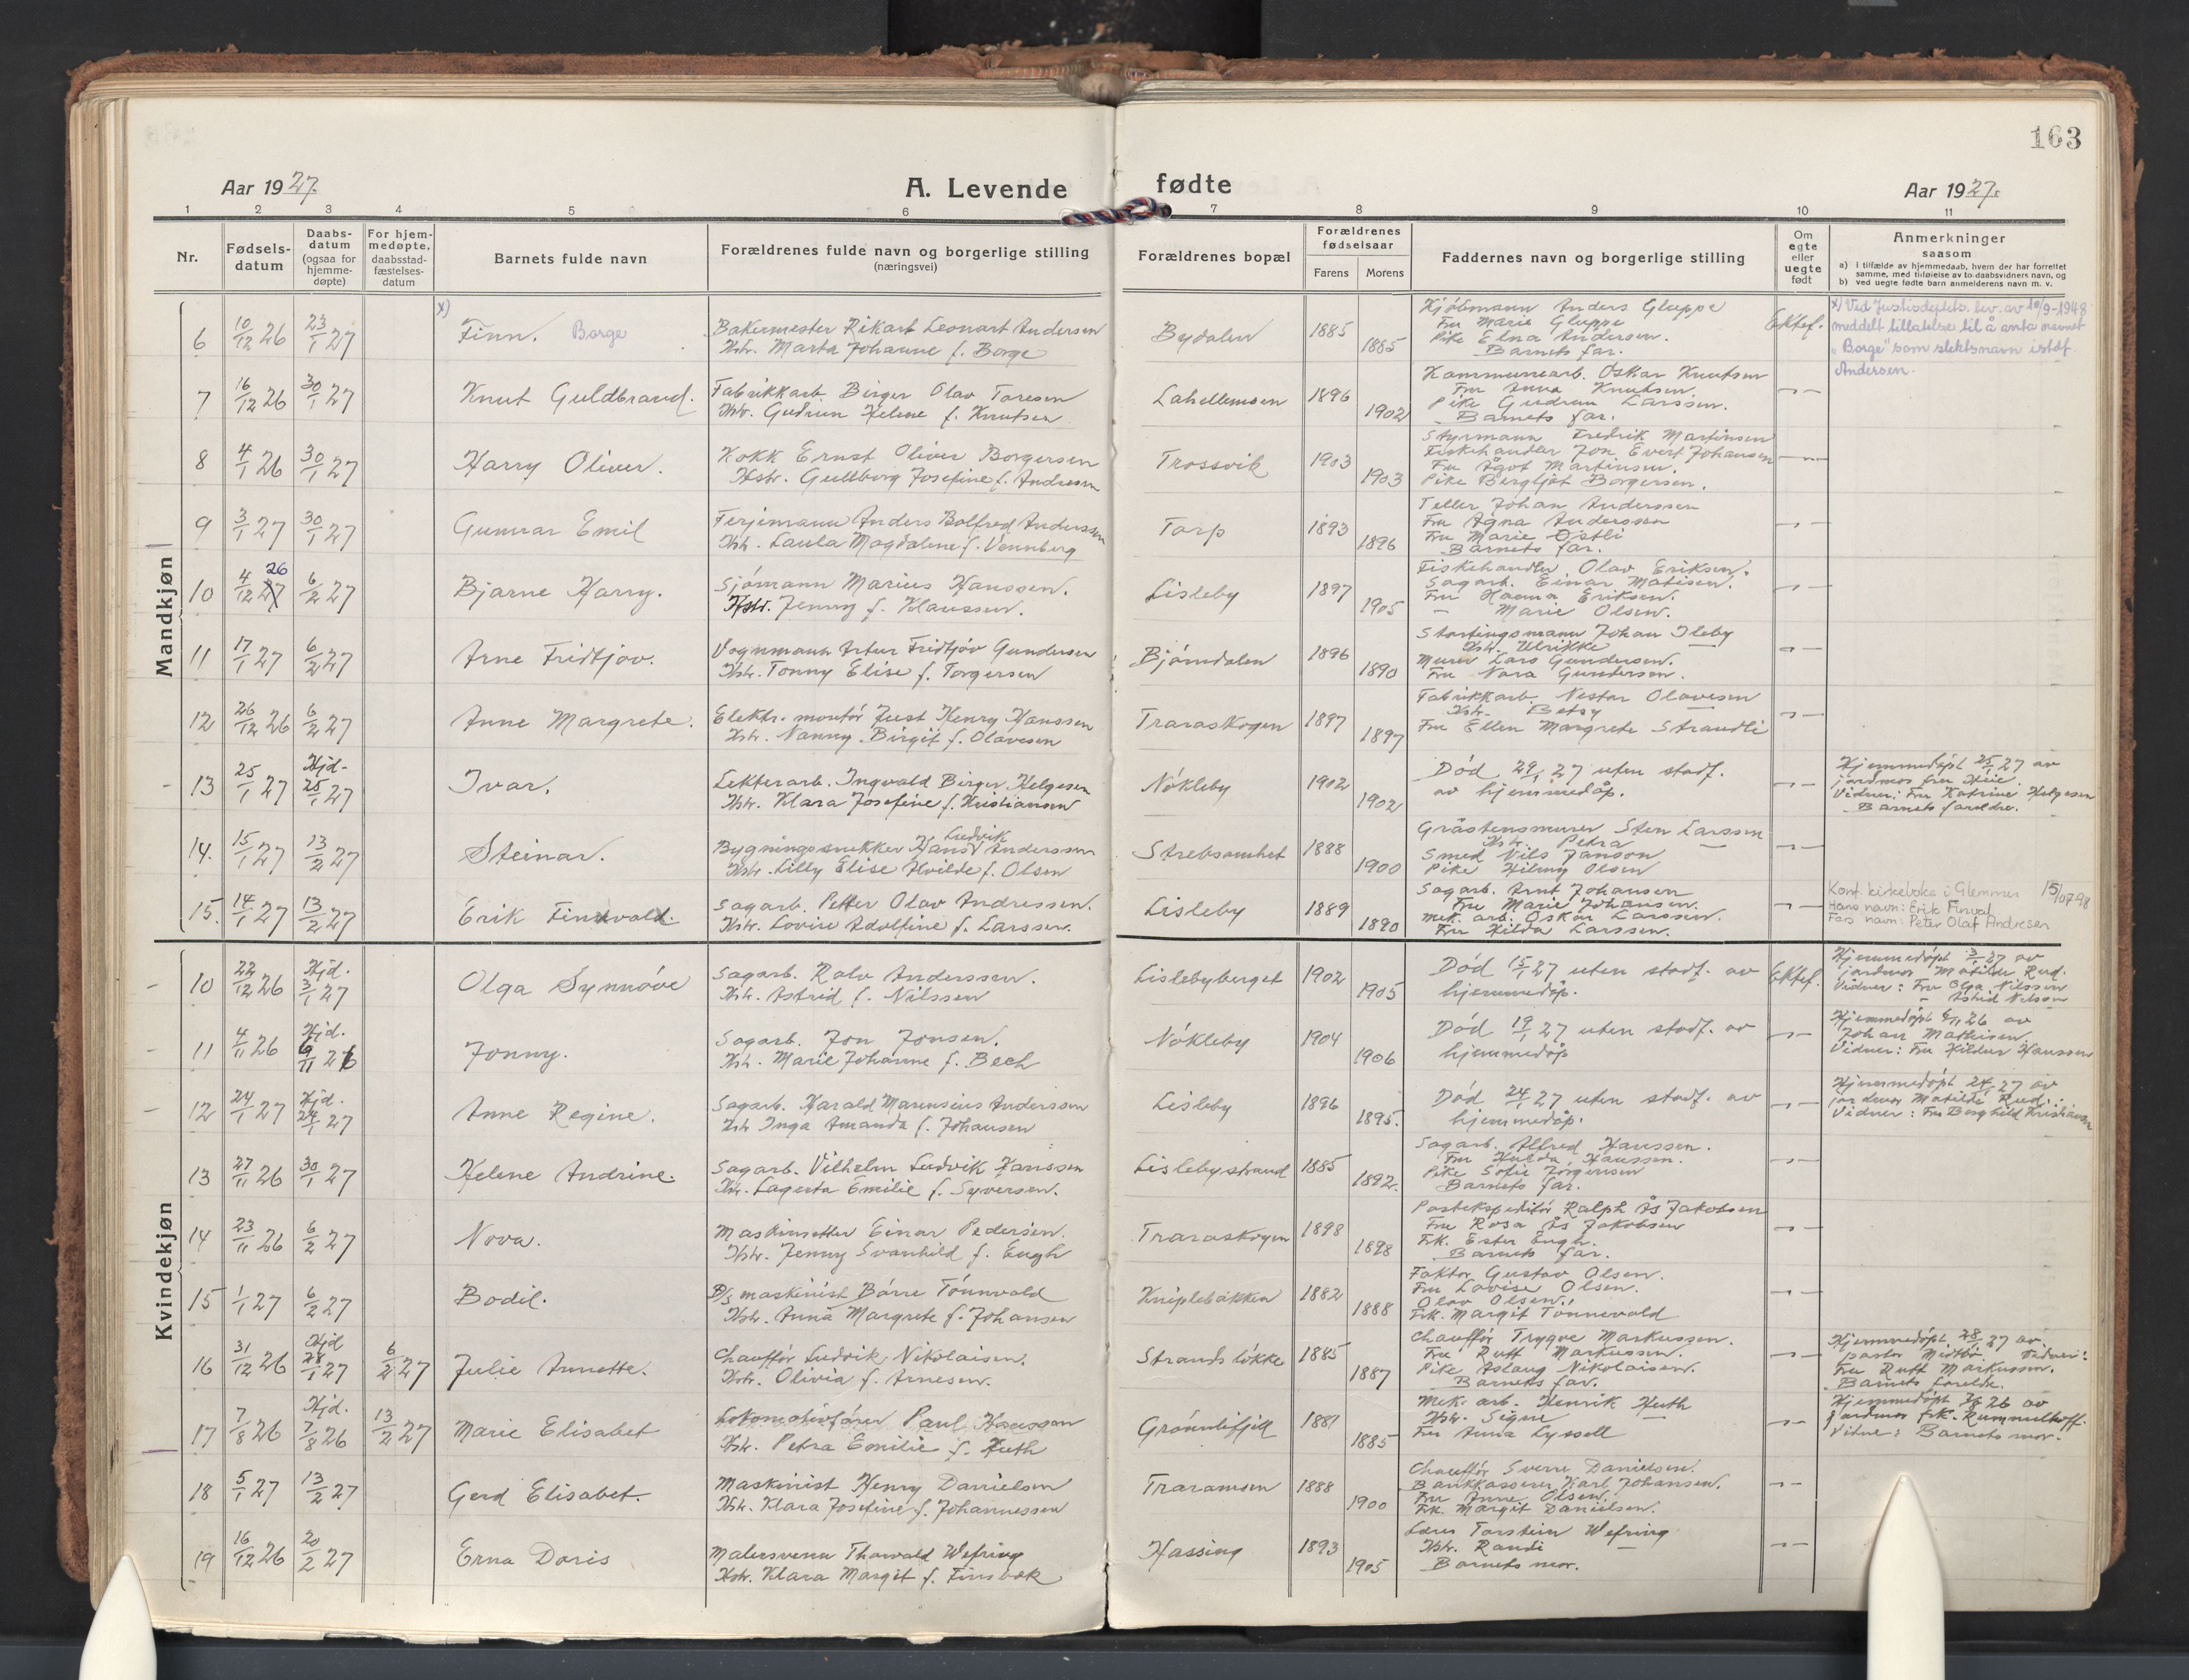 163
Aar 1927.
A. Levende fødte
Aar 1927.
1 2 3 4 5 6 7 8 9 10 11
Nr.
Fødsels-datum
Daabs-datum (ogsaa for hjemme-døpte)
For hjem-medøpte, daabsstad-fæstelses-datum
Barnets fulde navn
Forældrenes fulde navn og borgerlige stilling
(næringsvei)
Forældrenes bopæl
Forældrenes fødselsaar
Farens Morens
Faddernes navn og borgerlige stilling
Om egte eller uegte født
Anmerkninger
saasom
a) i tilfælde av hjemmedaab, hvem der har forrettet samme, med tilføielse av to daabsvidners navn, og
b) ved uegte fødte barn anmelderens navn m. v.
Mandkjøn
6 10/12 26 23/1 27 x) Finn. Borge
Bakermester Rikart Leonart Andersen
Hstr. Marta Johanne f. Borge
Bydalen 1885 1885
Kjøbmann Anders Gluppe
Fru Marie Gluppe
Pike Elna Andersen.
Barnets far.
Ektef.
x) Ved Justisdepts. brev. av 10/9-1948
meddelt tillatelse til å anta navnet
"Borge" som slektsnavn istdf.
Andersen.
7 16/12 26 30/1 27 Knut Guldbrand.
Fabrikkarb. Birger Olav Toresen
Hstr. Gudrun Helene f. Knutsen
Lahellemoen 1896 1902
Kommunearb. Oskar Knutsen
Fru Anna Knutsen.
Pike Gudrun Larssen.
Barnets far.
8 4/1 26 30/1 27 Harry Oliver.
Kokk Ernst Oliver Borgersen
Hstr. Gullborg Josefine f. Andresen
Trossvik 1903 1903
Styrmann Fredrik Martinsen
Fiskehandler Jon Evert Johansen
Fru Ågot Martinsen.
Pike Bergljot Borgersen.
9 3/1 27 30/1 27 Gunnar Emil
Ferjemann Anders Bolfred Anderssen
Hstr. Laula Magdalene f. Vennberg
Torp 1893 1896
Teller Johan Anderssen
Fru Agna Anderssen
Fru Marie Østli
Barnets far.
10 4/12 27 26 6/2 27 Bjarne Harry.
Sjømann Marius Hanssen.
Hstr. Jenny f. Klaussen.
Lisleby 1897 1905
Fiskehandler Olav Eriksen.
Sagarb. Einar Matisen.
Fru Hanna Eriksen.
— Marie Olsen.
11 17/1 27 6/2 27 Arne Fridtjov.
Vognmann Artur Fridtjov Gundersen
Hstr. Tonny Elise f. Torgersen
Bjørndalen 1896 1890
Stortingsmann Johan Ileby
Hstr. Ulrikke —
Murer Lars Gundersen.
Fru Nora Gundersen.
12 26/12 26 6/2 27 Anne Margrete.
Elektr. montør Just Henry Hanssen
Hstr. Nanny Birgit f. Olavesen
Traraskogen 1897 1897
Fabrikkarb. Nestor Olavesen
Hstr. Betsy —
Fru Ellen Margrete Strandli
13 25/1 27 Hjd. 25/1 27 Ivar.
Lekterarb. Ingvald Birger Helgesen
Hstr. Klara Josefine f. Kristiansen
Nøkleby 1902 1902
Død 29/1 27 uten stadf.
av hjemmedåp.
Hjemmedøpt 25/1 27 av
jordmor fru Heie.
Vidner: Fru Katrine Helgesen
Barnets foreldre.
14. 15/1 27 13/2 27 Steinar.
Bygningssnekker Hans Ludvik Anderssen
Hstr. Lilly Elise Hvilde f. Olsen
Strebsomhet 1888 1900
Gråstensmurer Sten Larssen
Hstr. Petra —
Smed Nils Janson
Pike Hilmy Olsen
15. 14/1 27 13/2 27 Erik Finnvald.
Sagarb. Petter Olav Andressen.
Hstr. Lovise Adolfine f. Larssen.
Lisleby 1889 1890
Sagarb. Arnt Johansen
Fru Marie Johansen.
Mek. arb. Oskar Larssen.
Fru Hilda Larssen.
Konf. kirkeboka i Glemmen 15/07-98
Hans navn: Erik Finval
Fars navn: Peter Olaf Andresen
Kvindekjøn
10 22/12 26 Hjd. 3/1 27 Olga Synnøve
Sagarb. Rolv Anderssen.
Hstr. Astrid f. Nilssen
Lislebyberget 1902 1905
Død 15/1 27 uten stadf. av
hjemmedåp.
Ektef.
Hjemmedøpt 3/1 27 av
jordmor Matilde Rud.
Vidner: Fru Olga Nilssen
— Astrid Nilsen
11 4/11 26 Hjd. 6/11 26 Jonny.
Sagarb. Jon Jonsen.
Hstr. Marie Johanne f. Bech
Nøkleby 1904 1906
Død 19/1 27 uten stadf. av
hjemmedåp
Hjemmedøpt 6/11 26 av
Johan Mathisen.
Vidner: Fru Hildur Hanssen
12 24/1 27 Hjd. 24/1 27 Anne Regine.
Sagarb. Harald Marensius Anderssen
Hstr Inga Amanda f. Johansen
Lisleby 1896 1895.
Død 24/1 27 uten stadf. av
hjemmedåp.
Hjemmedøpt 24/1 27 av
jordmor Matilde Rud.
Vidner: Fru Borghild Kristiansen
13 27/11 26 30/1 27 Helene Andrine.
Sagarb. Vilhelm Ludvik Hanssen
Hstr. Lagerta Emilie f. Syversen.
Lislebystrand 1885 1892.
Sagarb. Alfred Hanssen.
Fru Hulda Hanssen.
Pike Sofie Jørgensen
Barnets far.
14 23/11 26 6/2 27 Nova.
Maskinsetter Einar Pedersen.
Hstr. Jenny Svanhild f. Engh
Traraskogen 1898 1898
Postekspeditør Ralph Ås Jakobsen
Fru Rosa Ås Jakobsen
Frk. Ester Engh.
Barnets far.
15 1/1 27 6/2 27 Bodil.
D/s maskinist Børre Tønnvald
Hstr. Anna Margrete f. Johansen
Kniplebakken 1882 1888
Faktor Gustav Olsen.
Fru Lovise Olsen.
Olav Olsen.
Frk. Margit Tønnevald
16 31/12 26 Hjd 28/1 27 6/2 27 Julie Annette.
Chauffør Ludvik Nikolaisen.
Hstr. Olivia f. Arnesen.
Strandsløkke 1885 1887
Chauffør Trygve Markussen.
Fru Rutt Markussen.
Pike Aslaug Nikolaisen.
Barnets far.
Hjemmedøpt 28/1 27 av
pastor Midtbø. Vidner:
Fru Rutt Markussen.
Barnets foreldre.
17 7/8 26 Hjd. 7/8 26 13/2 27 Marie Elisabet
Lokomotivfører Paul Hanssen
Hstr. Petra Emilie f. Huth
Grønnlifjell 1881 1885
Mek. arb. Henrik Huth
Hstr. Signe —
Fru Anna Lyssell
Hjemmedøpt 7/8 26 av
jordmor frk. Rummelhoff.
Vidne: Barnets mor.
18 5/1 27 13/2 27 Gerd Elisabet.
Maskinist Henry Danielsen
Hstr. Klara Josefine f. Johannessen
Traramoen 1888 1900
Chauffør Sverre Danielsen.
Bankkasserer Karl Johansen.
Fru Anne Olsen.
Frk. Margit Danielsen.
19 16/12 26 20/2 27 Erna Doris
Malersvenn Thorvald Wefring
Hstr. Klara Margit f. Finsbæk
Hassing 1893 1905
Lærer Torstein Wefring
Hstr. Randi —
Barnets mor.